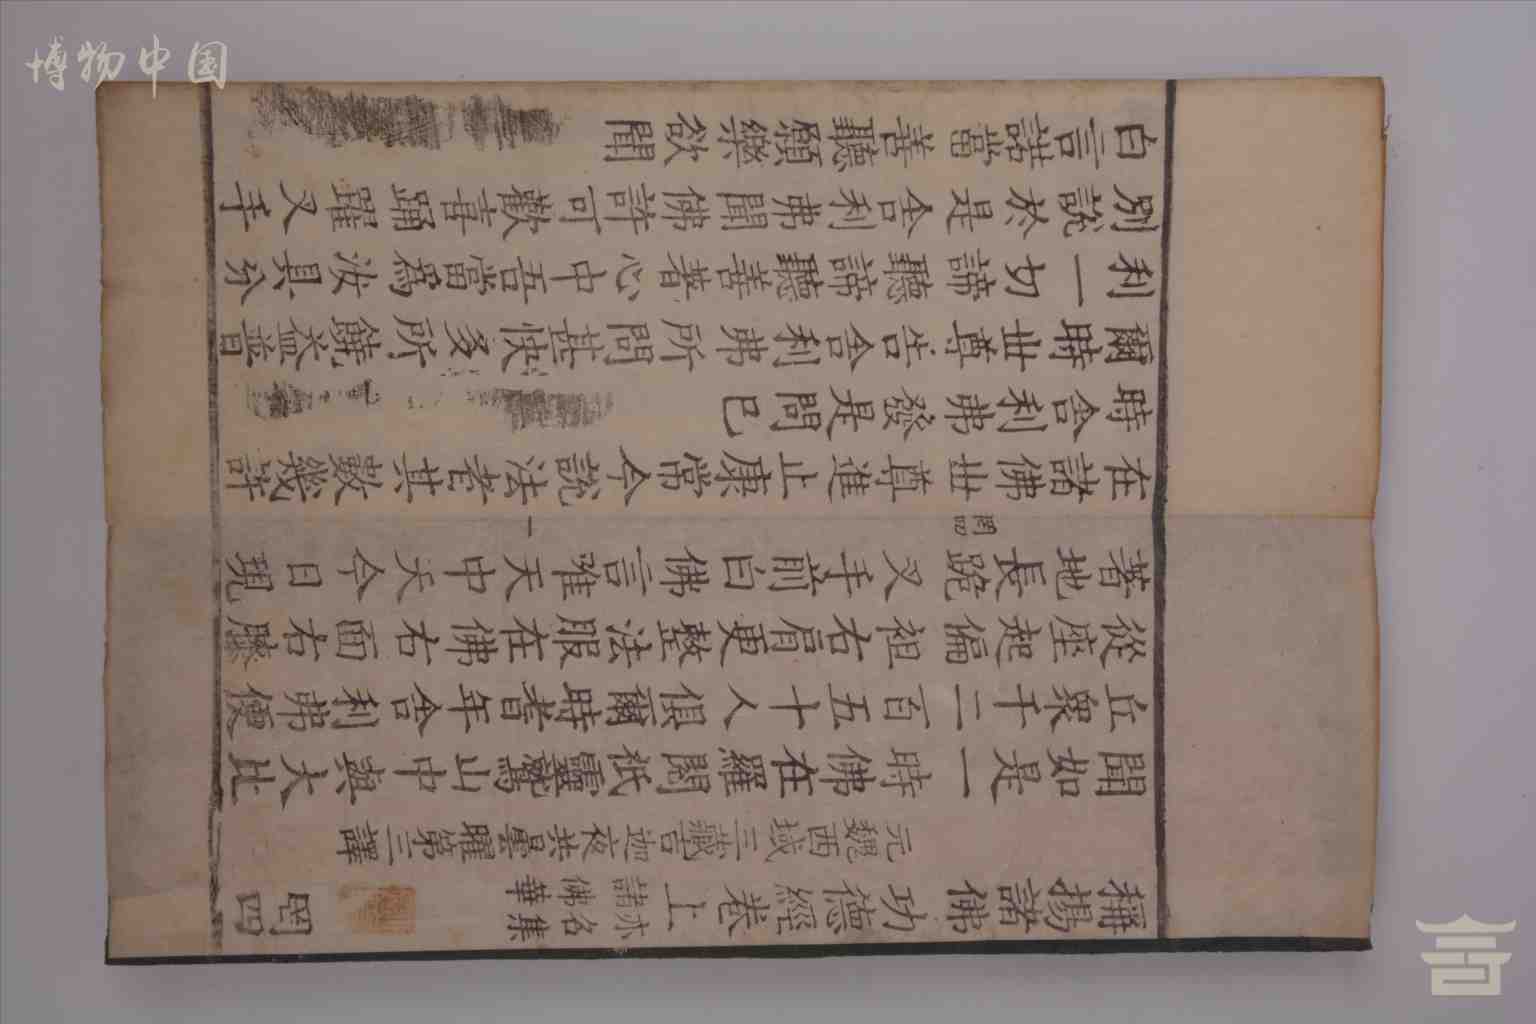 博物中国
稱揚諸佛功德經卷上 亦名集諸佛華 罔四
元魏西域三藏吉迦夜共曇曜第三譯
聞如是一時佛在羅閱祇靈鷲山中與大比
丘眾千二百五十人俱爾時耆年舍利弗便
從座起偏袒右肩更整法服在佛右面右膝
著地長跪叉手前白佛言唯天中天今日現
罔四 一
在諸佛世尊進止康常今說法者其數幾許
時舍利弗發是問已
爾時世尊告舍利弗所問甚快多所饒益普
利一切諦聽諦聽善著心中吾當爲汝具分
別說於是舍利弗聞佛許可歡喜踊躍叉手
白言諾當善聽願樂欲聞